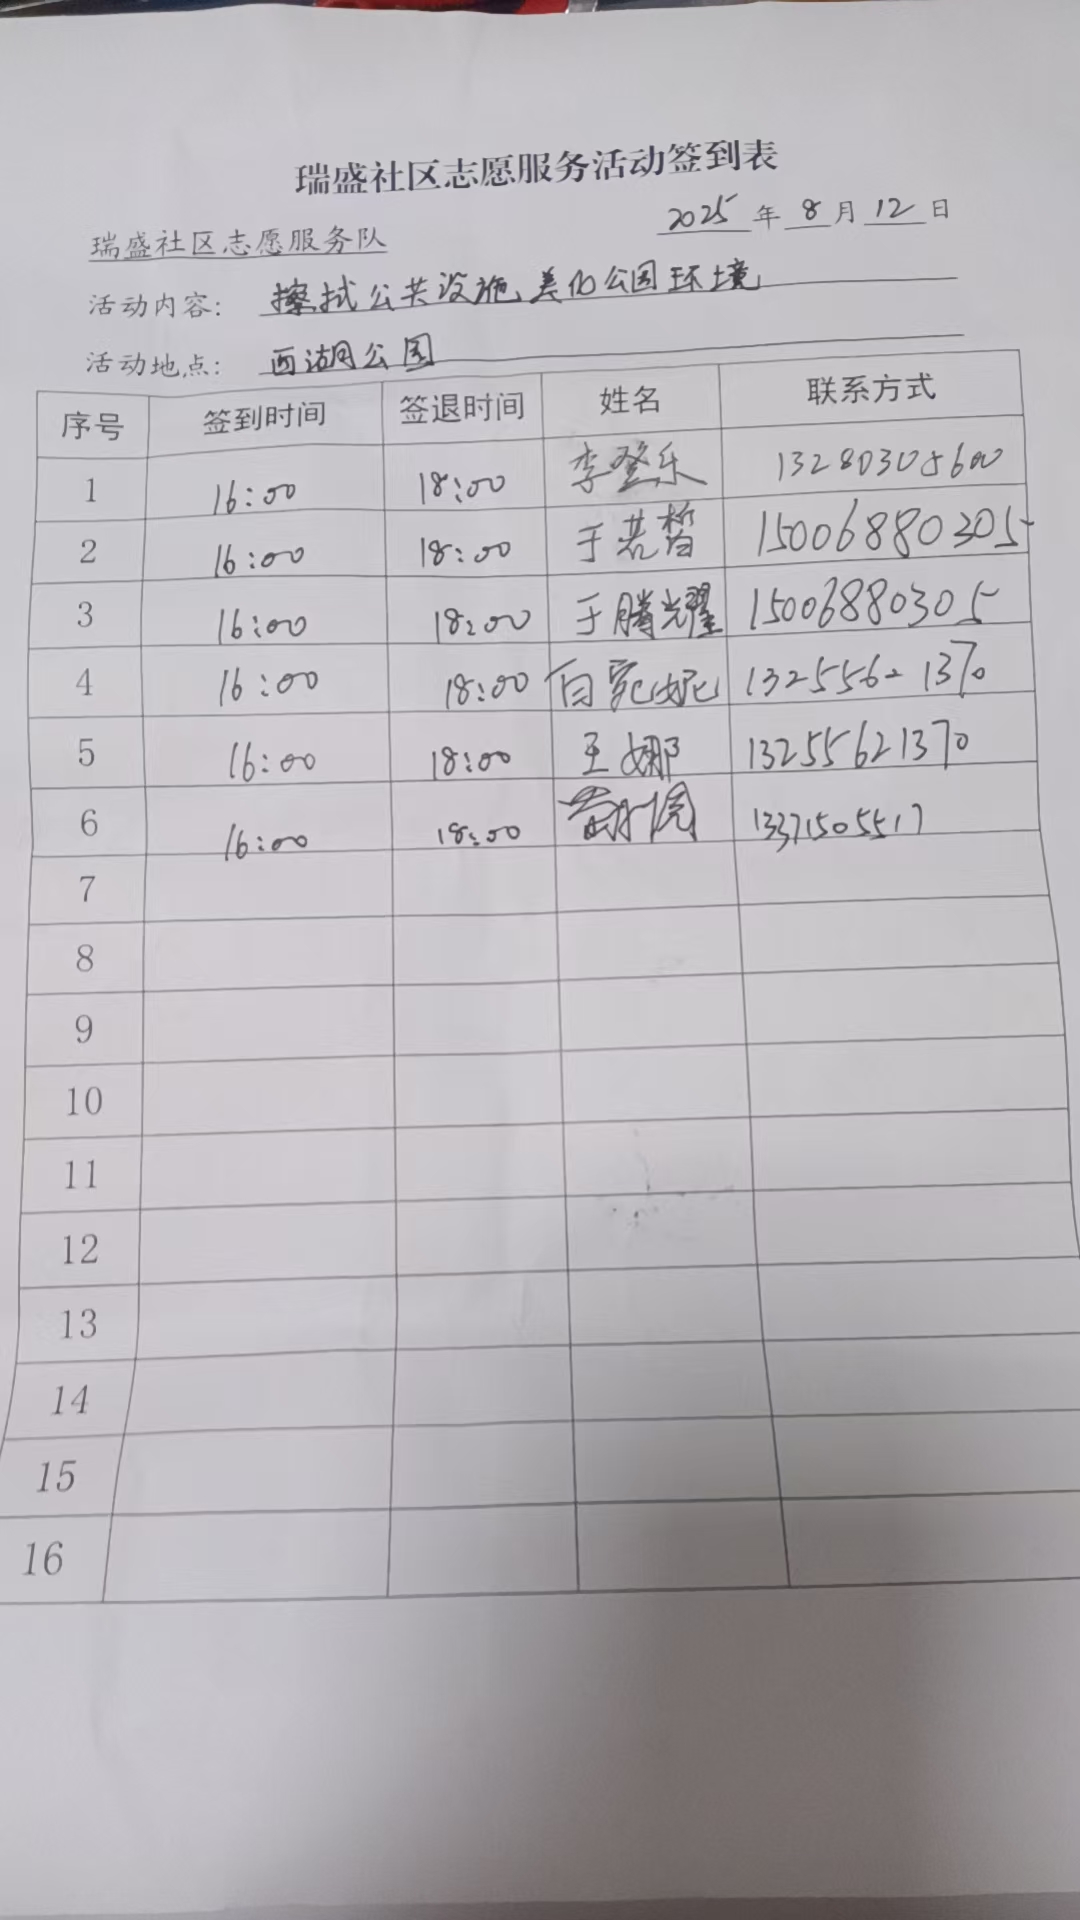 瑞盛社区志愿服务活动签到表
2025 年 8 月 12 日
瑞盛社区志愿服务队
活动内容: 擦拭公共设施,美化公园环境
活动地点: 西湖公园
序号 签到时间 签退时间 姓名 联系方式
1 16:00 18:00 李登乐 13280305600
2 16:00 18:00 于若皙 15006880305
3 16:00 18:00 于腾耀 15006880305
4 16:00 18:00 白宛妮 13255621370
5 16:00 18:00 王娜 13255621370
6 16:00 18:00 13371505517
7
8
9
10
11
12
13
14
15
16